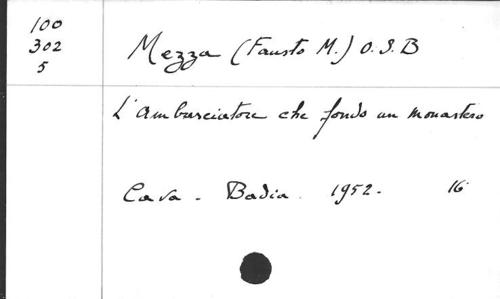 100
302
5
Mezza (Fausto M.) O.S.B
L'ambasciatore che fondò un monastero
Cava - Badia. 1952. 16